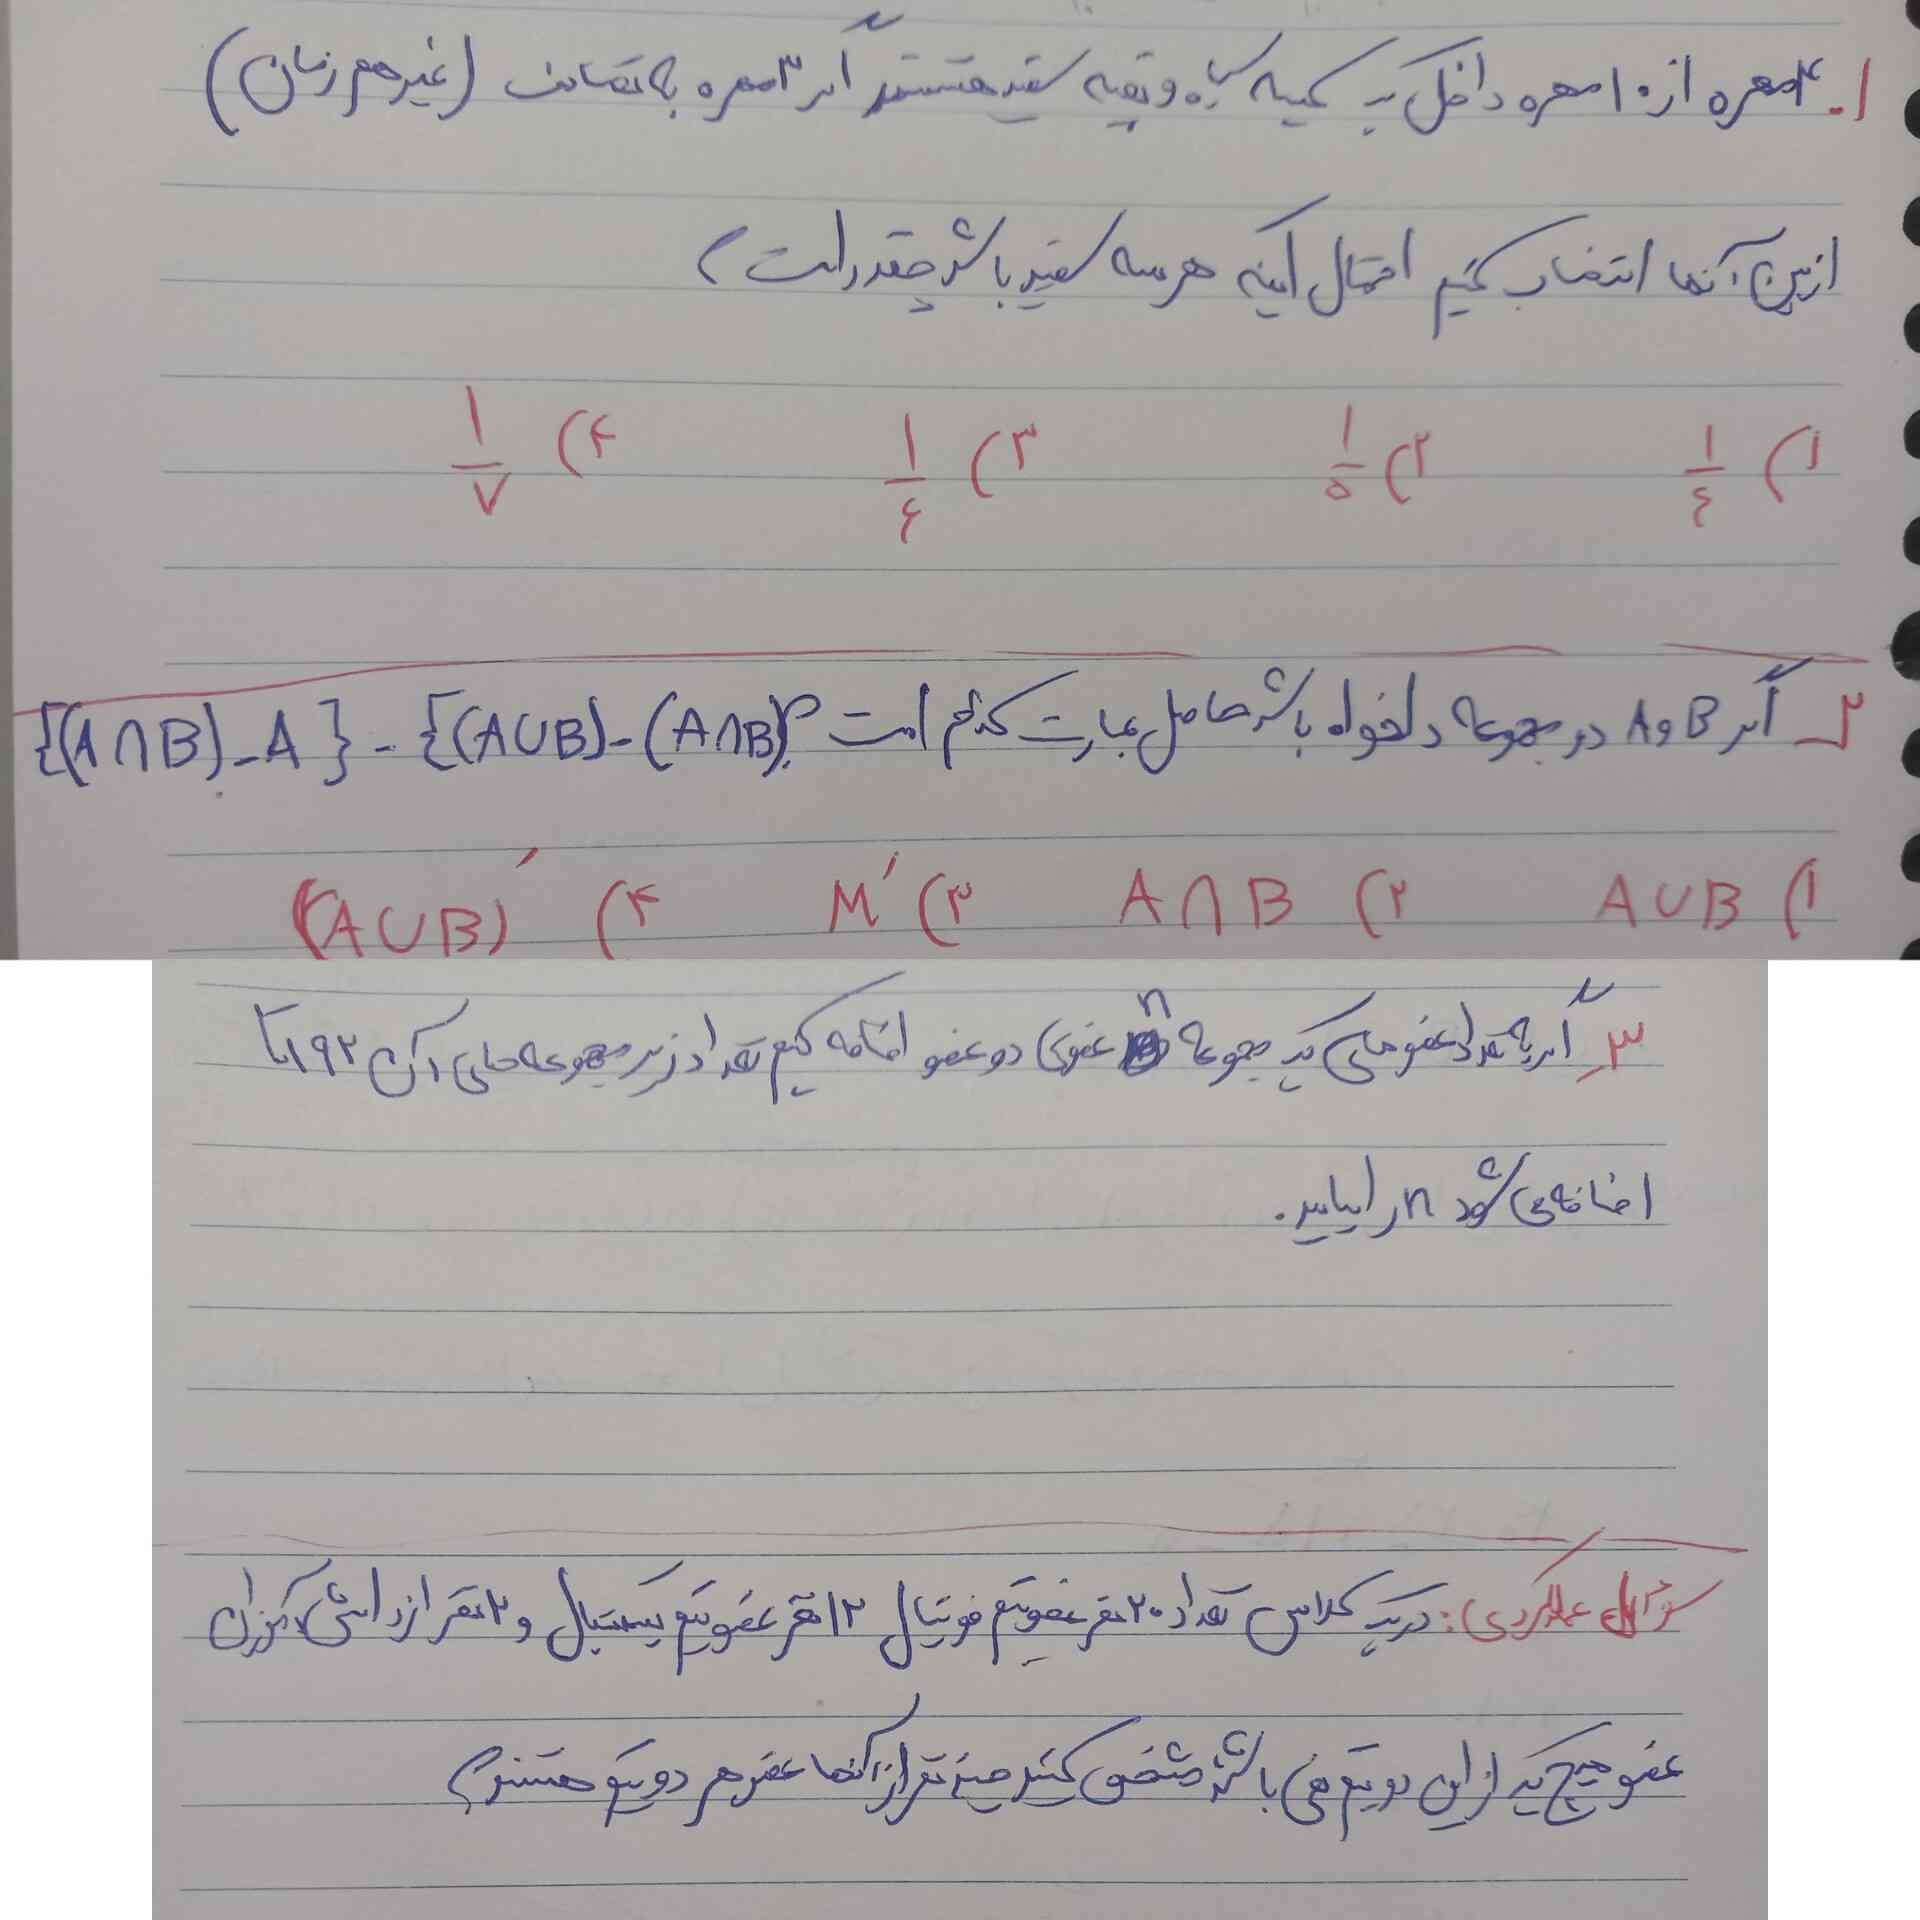 ۱. ۴ مهره از ۱۰ مهره داخل یک کیسه سیاه و بقیه سفید هستند اگر ۳ مهره به تصادف (غیر هم زمان)
از بین آنها انتخاب کنیم احتمال اینکه هر سه سفید باشد چقدر است؟
۱) ۱/٤ ۲) ۱/۵ ۳) ۱/٤ ۴) ۱/۷
۲ــ اگر A و B دو مجموعه دلخواه باشد حاصل عبارت کدام است؟ {(A∩B)-A} - {(A∪B)-(A∩B)
۱) A∪B ۲) A∩B ۳) M′ ۴) (A∪B)′
۳ــ اگر به تعداد عضو های یک مجموعه n عضوی دو عضو اضافه کنیم تعداد زیر مجموعه های آن ۱۹۲ تا
اضافه می شود n را بیابید.
سوال عملکردی: در یک کلاس تعداد ۲۰ نفر عضو تیم فوتبال ۱۲ نفر عضو تیم بسکتبال و ۲ نفر از دانش آموزان
عضو هیچ یک از این دو تیم نمی باشد مشخص کنید چند نفر از آنها عضو هر دو تیم هستند؟